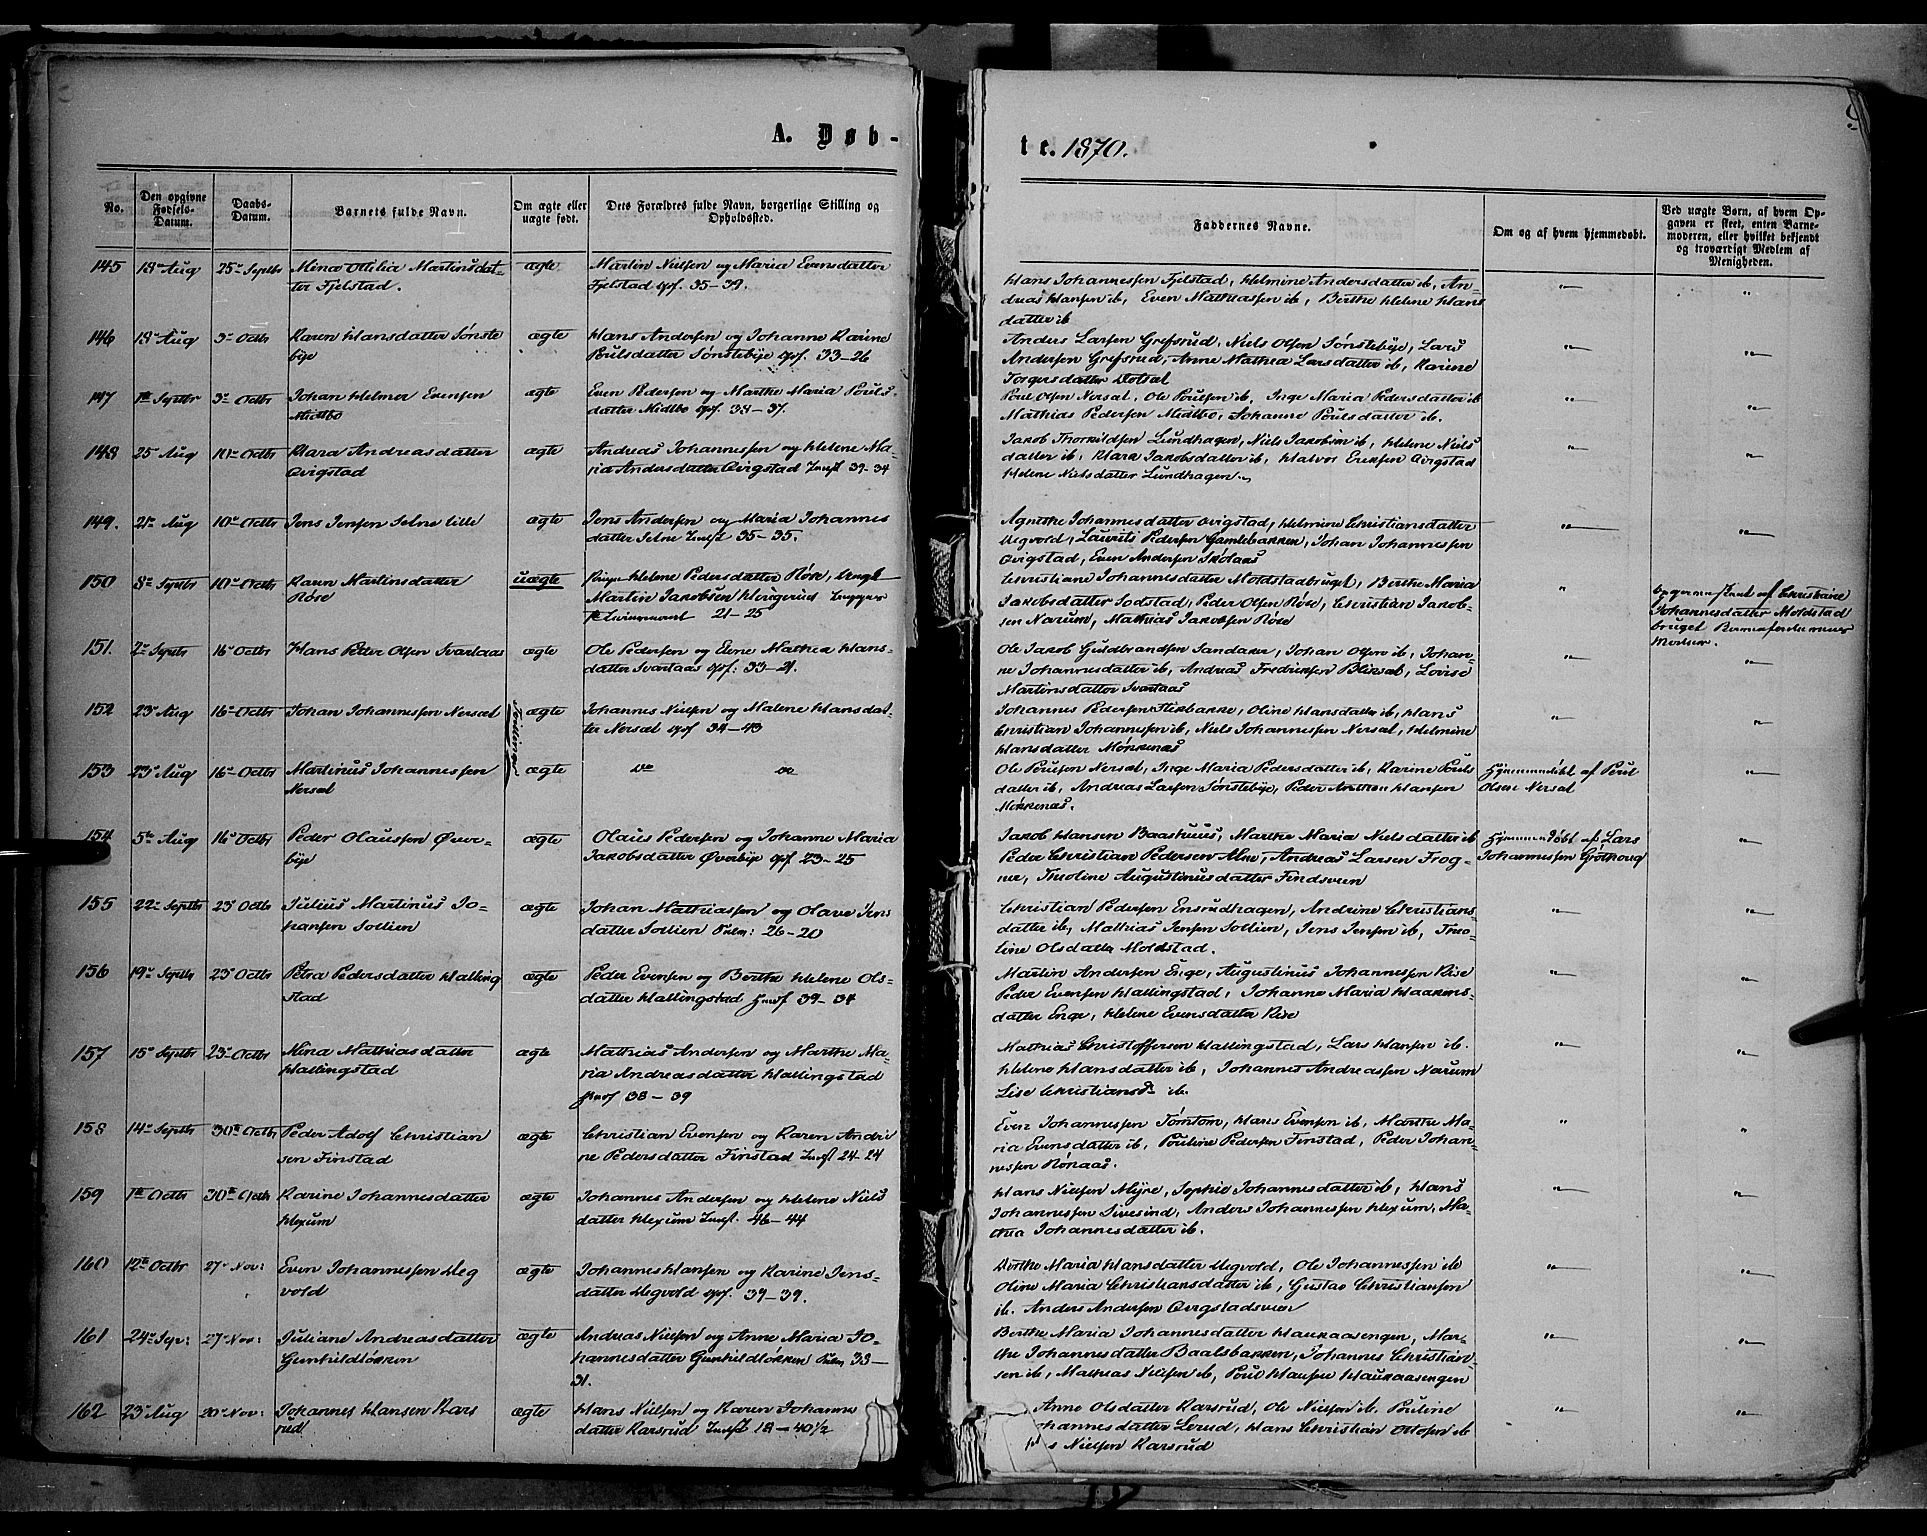 A. Døb-
te. 1870.
No.
Den opgivne Fødsels-Datum.
Daabs-Datum.
Barnets fulde Navn.
Om ægte eller uægte født.
Dets Forældres fulde Navn, borgerlige Stilling og Opholdssted.
Faddernes Navne.
Om og af hvem hjemmedøbt.
Ved uægte Børn, af hvem Opgaven er skeet, enten Barnemoderen, eller hvilket bekjendt og troværdigt Medlem af Menigheden.
145 18de Aug 25de Septbr Mina Ottilia Martinsdat- ægte Martin Nielsen og Maria Evensdatter
ter Fjelstad. Fjelstad gpf. 35-39.
Hans Johannessen Fjelstad, Helmine Andersdatter ib, An-
dreas Hansen ib, Even Mathiassen ib, Berthe Helene Hans
datter ib
146 18 Aug 3 Octbr Karen Hansdatter Sønste ægte Hans Andersen og Johanne Karine
bye Poulsdatter Sønstebye gpf. 33-26
Anders Larsen Grefsrud, Niels Olsen Sønstebye, Lars
Andersen Grefsrud, Anne Mathea Larsdatter ib, Karine
Torgersdatter Dotsæt
147 1ste Septbr 3 Octbr Johan Helmer Evensen ægte Even Pedersen og Marthe Maria Pouls
Midtbø datter Midtbø gpf. 38-37.
Poul Olsen Nersæt, Ole Poulsen ib, Inge Maria Pedersdatter ib
Mathias Pedersen Midtbø, Johanne Poulsdatter ib.
148 25 Aug 10 Octbr Klara Andreasdatter ægte Andreas Johannessen og Helene Ma-
Qvigstad ria Andersdatter Qvigstad Inest 39-34
Jakob Thorkildsen Lundhagen, Niels Jakobsen ib, Helene Niels
datter ib, Klara Jakobsdatter ib, Halvor Eriksen Qvigstad
Helene Nielsdatter Lundhagen
149. 21 Aug 10 Octbr Jens Jensen Selne lille ægte Jens Andersen og Maria Johannes
datter Selne Inest 35-35.
Agnethe Johannesdatter Qvigstad, Helmine Christiansdatter
Hegvold, Laurits Pedersen Gamlebakken, Johan Johannessen
Qvigstad, Even Andersen Skølaas
150 8 Septbr 10 Octbr Karen Martinsdatter uægte Pigen Helene Pedersdatter Røse, Ungk
Røse Martin Jakobsen Haugerud
21-25
Christiane Johannesdatter Moldstadbruget, Berthe Maria
Jakobsdatter Sodstad, Peder Olsen Røse, Christian Jakob-
sen Narum, Mathias Jakobsen Røse
Opgaven skeet af Christiane
Johannesdatter Moldstad
bruget
Moder.
151. 2 Septbr 16 Octbr Hans Peder Olsen Svartaas ægte Ole Pedersen og Elene Mathea Hans-
datter Svartaas gpf. 33-21.
Ole Jakob Guldbrandsen Sandaker, Johan Olsen ib, Johan-
ne Johannesdatter ib, Andreas Fredriksen Bliksæt, Lovise
Martinsdatter Svartaas
152 23 Aug 16 Octbr Johan Johannessen Nersæt Tvillinger ægte Johannes Nielsen og Malene Hansdat-
ter Nersæt gpf 34-43
Johannes Pedersen Flikbakke, Oline Hansdatter ib, Hans
Christian Johannessen ib, Niels Johannessen Nersæt, Helmine
Hansdatter Mønkenas
153 23 Aug 16 Octbr Martinus Johannessen ægte do do
Nersæt
Ole Poulsen Nersæt, Inge Maria Pedersdatter ib, Karine Pouls
datter ib, Andreas Larsen Sønstebye, Peder Anthon Hansen
Mønkenas.
Hjemmedøbt af Poul
Olsen Nersæt
154 5te Aug 16 Octbr Peder Olaussen Øver- ægte Olaus Pedersen og Johanne Maria
bye Jakobsdatter Øverbye gpf 23-25
Jakob Hansen Baashuus, Marthe Maria Nielsdatter ib
Peder Christian Pedersen Alm, Andreas Larsen Frog-
ner, Theoline Augustinusdatter Findsveen
Hjemmedøbt af Lars
Johannessen Grøthoug
155 22 Septbr 23 Octbr Julius Martinus Jo- ægte Johan Mathiassen og Olave Jens
hansen Sollien datter Sollien Pulm: 26-20
Christian Pedersen Ensrudhagen, Andrine Christians-
datter ib, Mathias Jensen Sollien, Jens Jensen ib, Theo-
line Olsdatter Moldstad.
156 19 Septbr 23 Octbr Petra Pedersdatter Halling ægte Peder Evensen og Berthe Helene Ols-
stad datter Hallingstad Hmf 39-34
Martin Andersen Enge, Augustinus Johannessen Rise
Peder Evensen Hallingstad, Johanne Maria Haakens-
datter Enge, Helene Evensdatter Rise
157 15 Septbr 23 Octbr Mina Mathiasdatter ægte Mathias Andersen og Marthe Ma-
Hallingstad ria Andreasdatter Hallingstad
Hmf 38-39
Mathias Christoffersen Hallingstad, Lars Hansen ib.
Helene Hansdatter ib, Johannes Andreassen Narum
Lise Christiansdr ib.
158 14 Septbr 30te Octbr Peder Adolf Christian ægte Christian Evensen og Karen Andri
sen Finstad ne Pedersdatter Finstad Inest 24-24
Even Johannessen Tømtom, Hans Evensen ib, Marthe Ma-
ria Evensdatter ib, Pouline Pedersen Finstad, Peder Johan-
nessen Rønaas.
159 1te Octbr 30te Octbr Karine Johannesdatter ægte Johannes Andersen og Helene Niels
Hexum datter Hexum Inest. 46-44
Hans Nielsen Myre, Sophie Johannesdatter ib, Hans
Johannessen Sivesind, Anders Johannessen Hexum, Ma-
thea Johannesdatter ib.
160 12te Octbr 27 Nov: Even Johannessen Heg ægte Johannes Hansen og Karine Jens-
vold datter Hegvold gpf. 39-39.
Berthe Maria Hansdatter Hegvold, Ole Johannessen ib
Oline Maria Christiansdatter ib, Gustav Christiansen
ib. Anders Andersen Qvigstadsveen
161 24 Sep: 27 Nov: Juliane Andreasdatter ægte Andreas Nielsen og Anne Maria Jo-
Gunhildløkken hannesdatter Gunhildløkken Pulm 33-
31.
Berthe Maria Johannesdatter Haukaasengen, Mar-
the Johannesdatter Baalsbakken, Johannes Christian-
sen ib, Mathias Nielsen ib, Poul Hansen Haukaasengen
162 23 Aug 20 Nov: Johannes Hansen Kars ægte Hans Nielsen og Karen Johannes
rud datter Karsrud Inest 18-40½
Anne Olsdatter Karsrud, Ole Nielsen ib. Pouline
hannesdatter Lerud, Hans Christian Ottosen ib
s Nielsen Karsrud